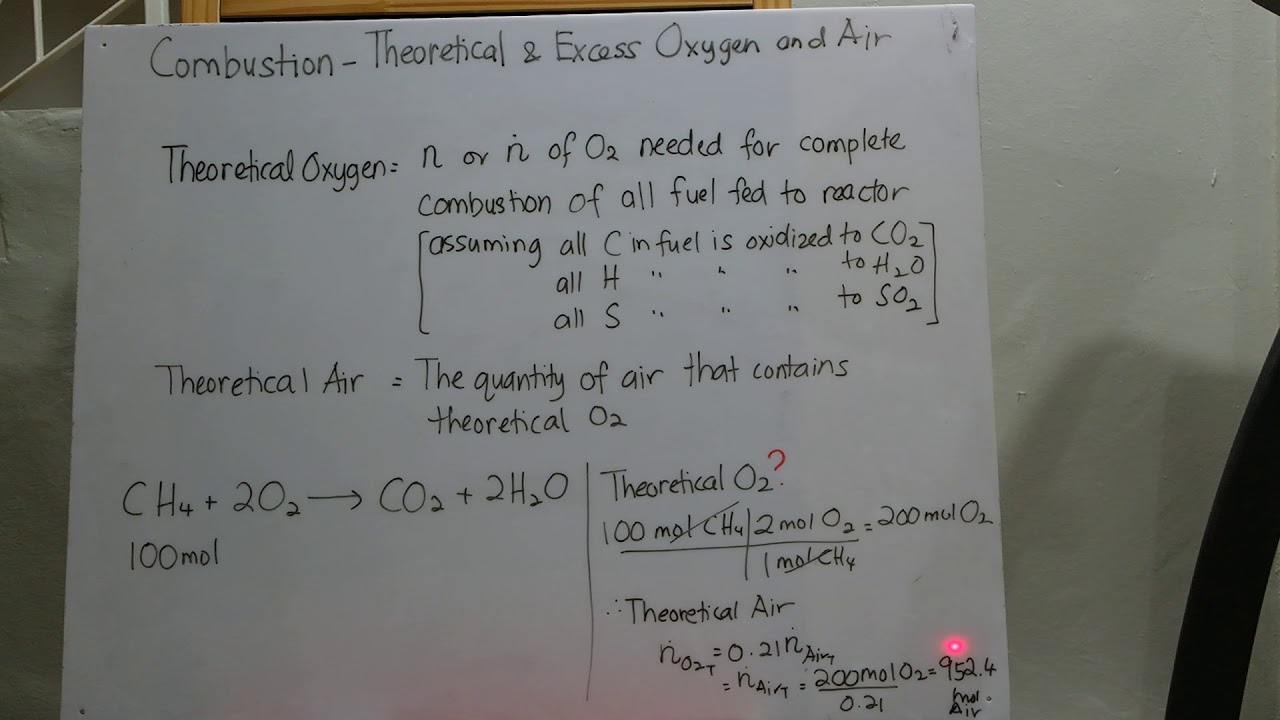 Combustion - Theoretical & Excess Oxygen and Air
Theoretical Oxygen = n or ṅ of O₂ needed for complete
combustion of all fuel fed to reactor
[assuming all C in fuel is oxidized to CO₂
all H " " " to H₂O
all S " " " to SO₂]
Theoretical Air = The quantity of air that contains
theoretical O₂
CH₄ + 2O₂ → CO₂ + 2H₂O
100mol
Theoretical O₂?
100 mol CH₄ | 2 mol O₂ = 200 mol O₂
1 mol CH₄
∴ Theoretical Air
ṅ O₂T = 0.21 ṅ AirT
= ṅ AirT = 200 mol O₂ = 952.4
0.21 mol.
Air